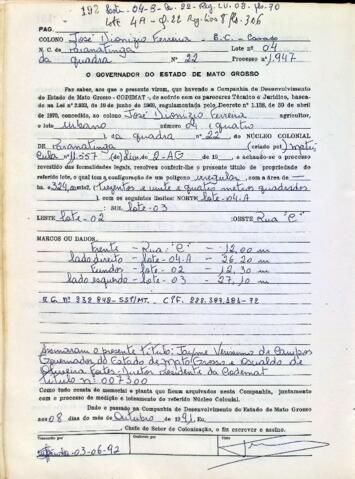 192 lote - 04-3-
lote 4A - Q.22 Reg. Livro 8 fls. 306
PAG.
COLONO José Dionizio Ferreira - B.C. - Casado
N. C. de Paranatinga Lote nº 04
da quadra 22 Processo nº 1.947
O GOVERNADOR DO ESTADO DE MATO GROSSO
Faz saber, aos que o presente virem, que havendo a Companhia de Desenvolvimento
do Estado de Mato Grosso - CODEMAT -, de acôrdo com os pareceres Técnico e Jurídico, basea-
de 1970, concedido, ao colono José Dionizio Ferreira agricultor,
o lote urbano nº 04 (quatro)
da quadra nº 22 do NÚCLEO COLONIAL
DE Paranatinga (criado pel
revestido das formalidades legais, resolveu conferir-lhe o presente título de propriedade do
referido lote, o qual tem a configuração de um polígono irregular, com a área de
324, metros (trezentos e vinte e quatro metros quadrados
) com os seguintes limites: NORTE lote-04.A
SUL lote-03
LESTE lote-02 OESTE Rua "C"
MARCOS OU DADOS
frente - Rua "C" - 12,00 m
lado direito - lote-04.A - 26,20 m
Fundos - lote-02 - 12,30 m
lado esquerdo - lote-03 - 27,10 m
Assinaram o presente título: Jayme Verissimo de Campos
Governador do Estado de Mato Grosso e Osvaldo de
Oliveira Fortes - Diretor Presidente da Codemat
título nº 007300
Como tudo consta do memorial e planta que ficam arquivados nesta Companhia, juntamente
com o processo de medição e loteamento do referido Núcleo Colonial.
Dado e passado na Companhia de Desenvolvimento do Estado de Mato Grosso
aos 08 dias do mês de Outubro de 1991, Eu,
Chefe do Setor de Colonização, o fiz escrever e assino.
03-06-92